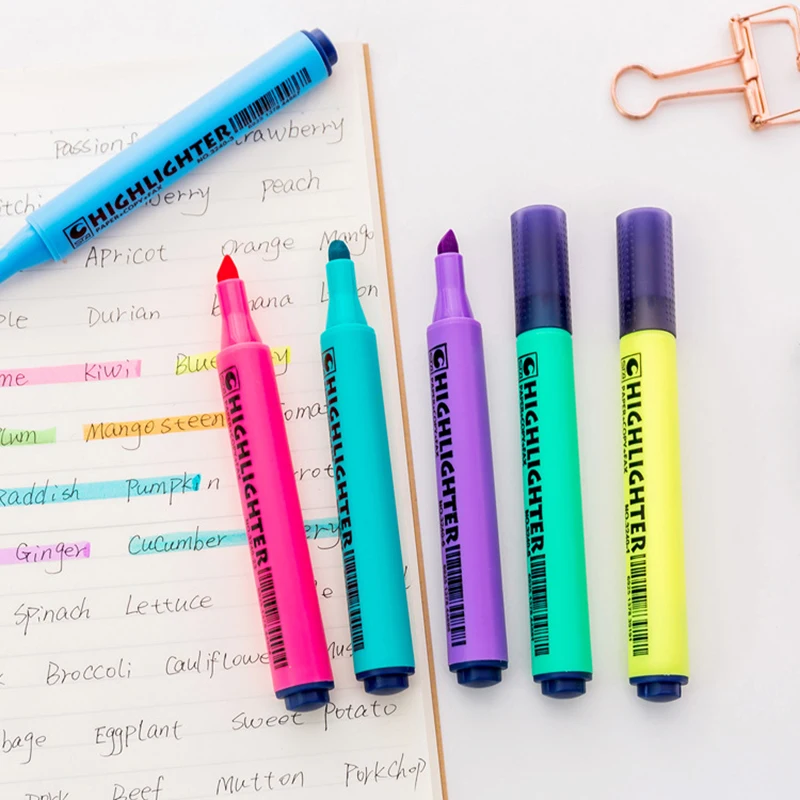 Passionf rawberry
itchi berry peach
Apricot Orange Mango
ple Durian b nana L on
me Kiwi Blue y
lum Mangosteen Toma
Raddish Pumpkin rrot
Ginger Cucumber ery
Spinach Lettuce e
Broccoli Cauliflowe Mus
bage Eggplant Sweet Potato
Pork Beef Mutton PorkChop
HIGHLIGHTER
PAPER•COPY•FAX
HIGHLIGHTER
HIGHLIGHTER
HIGHLIGHTER
PAPER•COPY•FAX
HIGHLIGHTER
PAPER•COPY•FAX
HIGHLIGHTER
PAPER•COPY•FAX